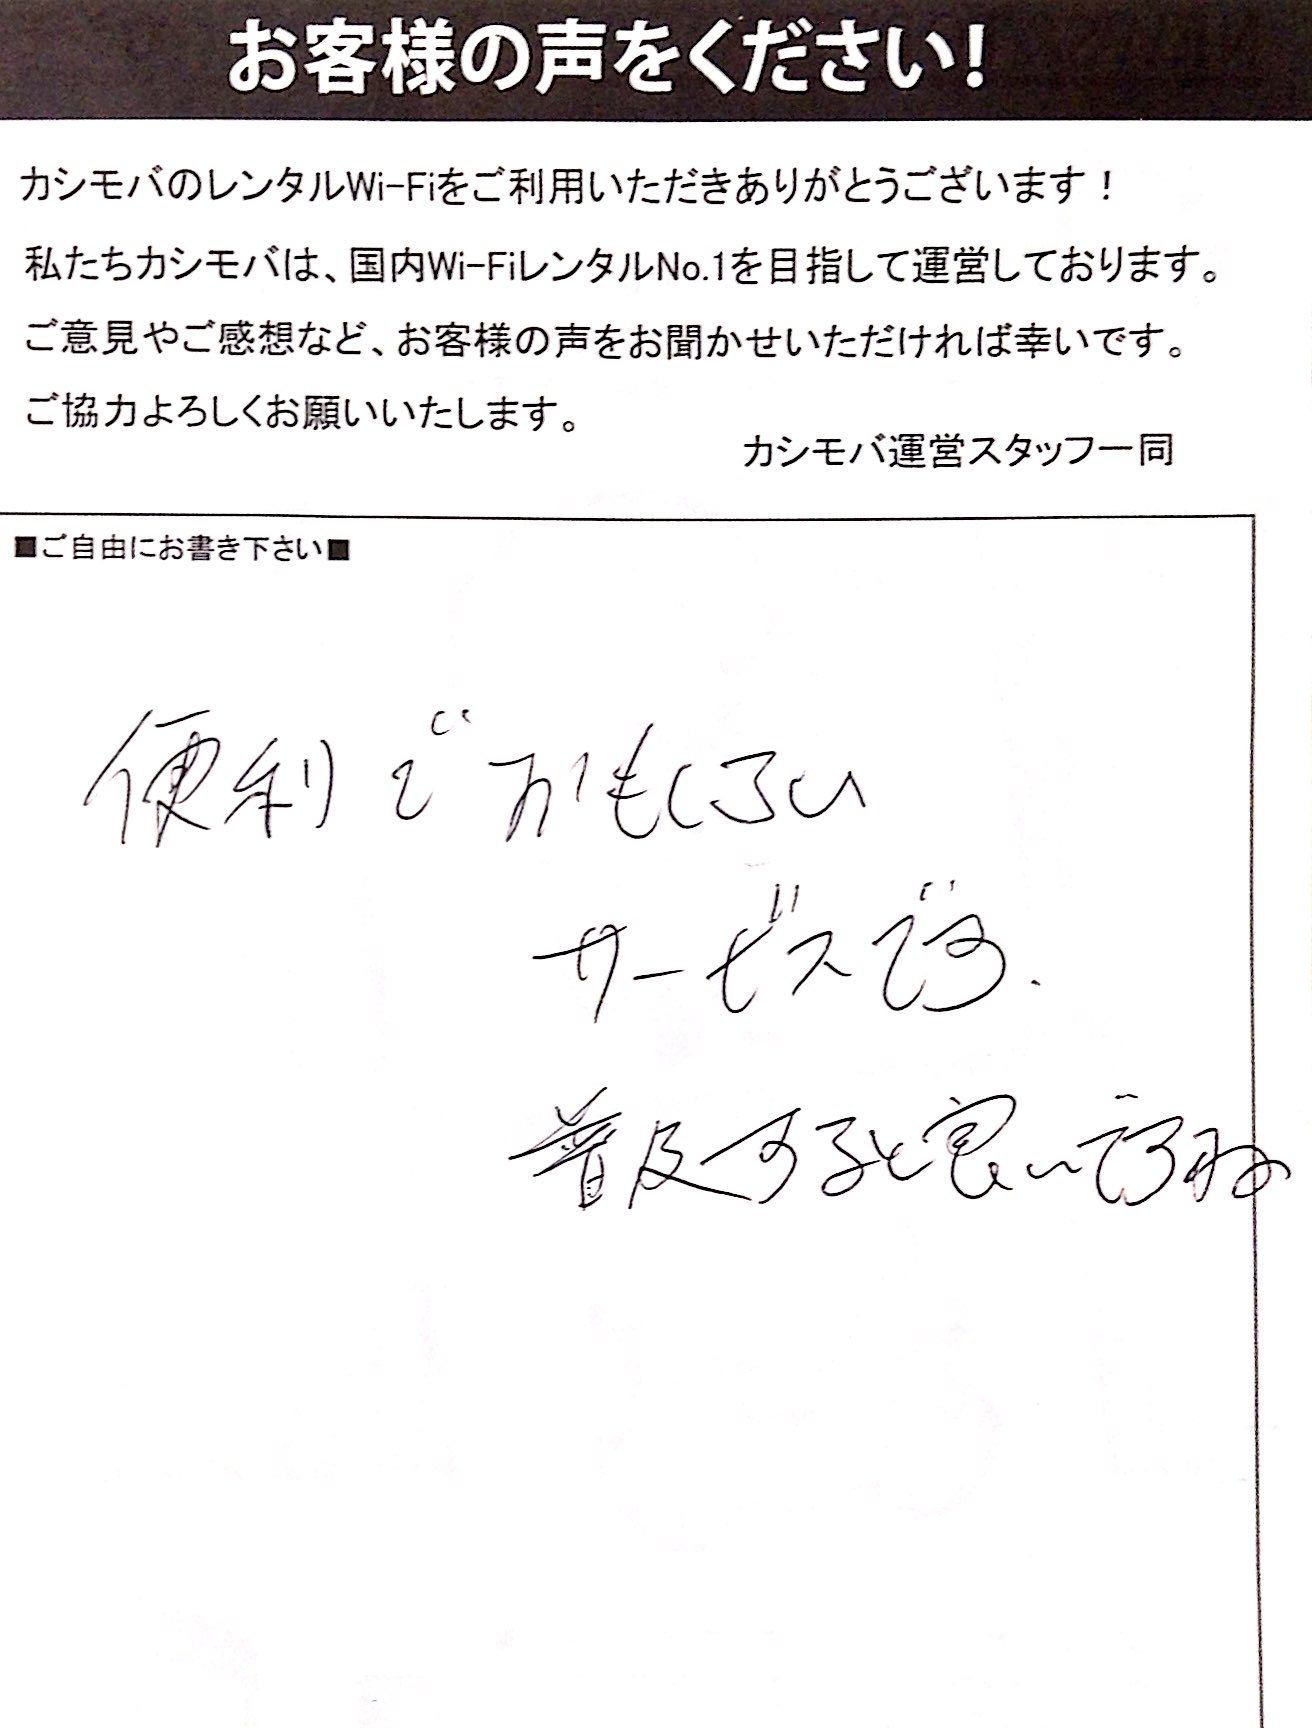 お客様の声をください!
カシモバのレンタルWi-Fiをご利用いただきありがとうございます！
私たちカシモバは、国内Wi-FiレンタルNo.1を目指して運営しております。
ご意見やご感想など、お客様の声をお聞かせいただければ幸いです。
ご協力よろしくお願いいたします。
カシモバ運営スタッフ一同
■ご自由にお書き下さい■
便利でおもしろい
サービスです.
普及すると良いですね